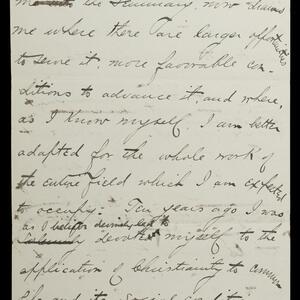 the Seminary, now draws
me where there are larger opportunities
to serve it, more favorable con-
ditions to advance it, and where,
as I know myself, I am better
adapted for the whole work of
the entire field which I am expected
to occupy. Ten years ago I was
as I believe divinely led to
devote myself to the
application of Christianity to
life and its social